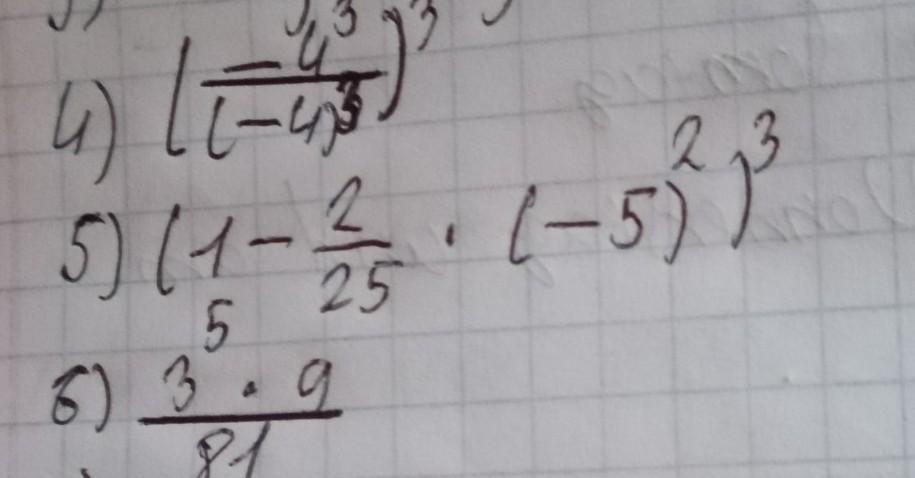 4) (-4³/(-4)³)³
5) (1 - 2/25 · (-5)²)³
6) 3⁵ · 9/81